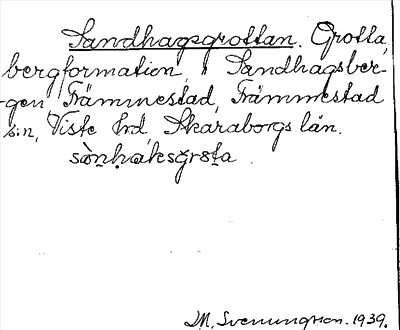 Sandhagsgrottan. Grotta,
bergformation i Sandhagsber-
gen, Främmestad, Främmestad
s:n, Viste hrd, Skaraborgs län.
M. Svenungsson. 1939.